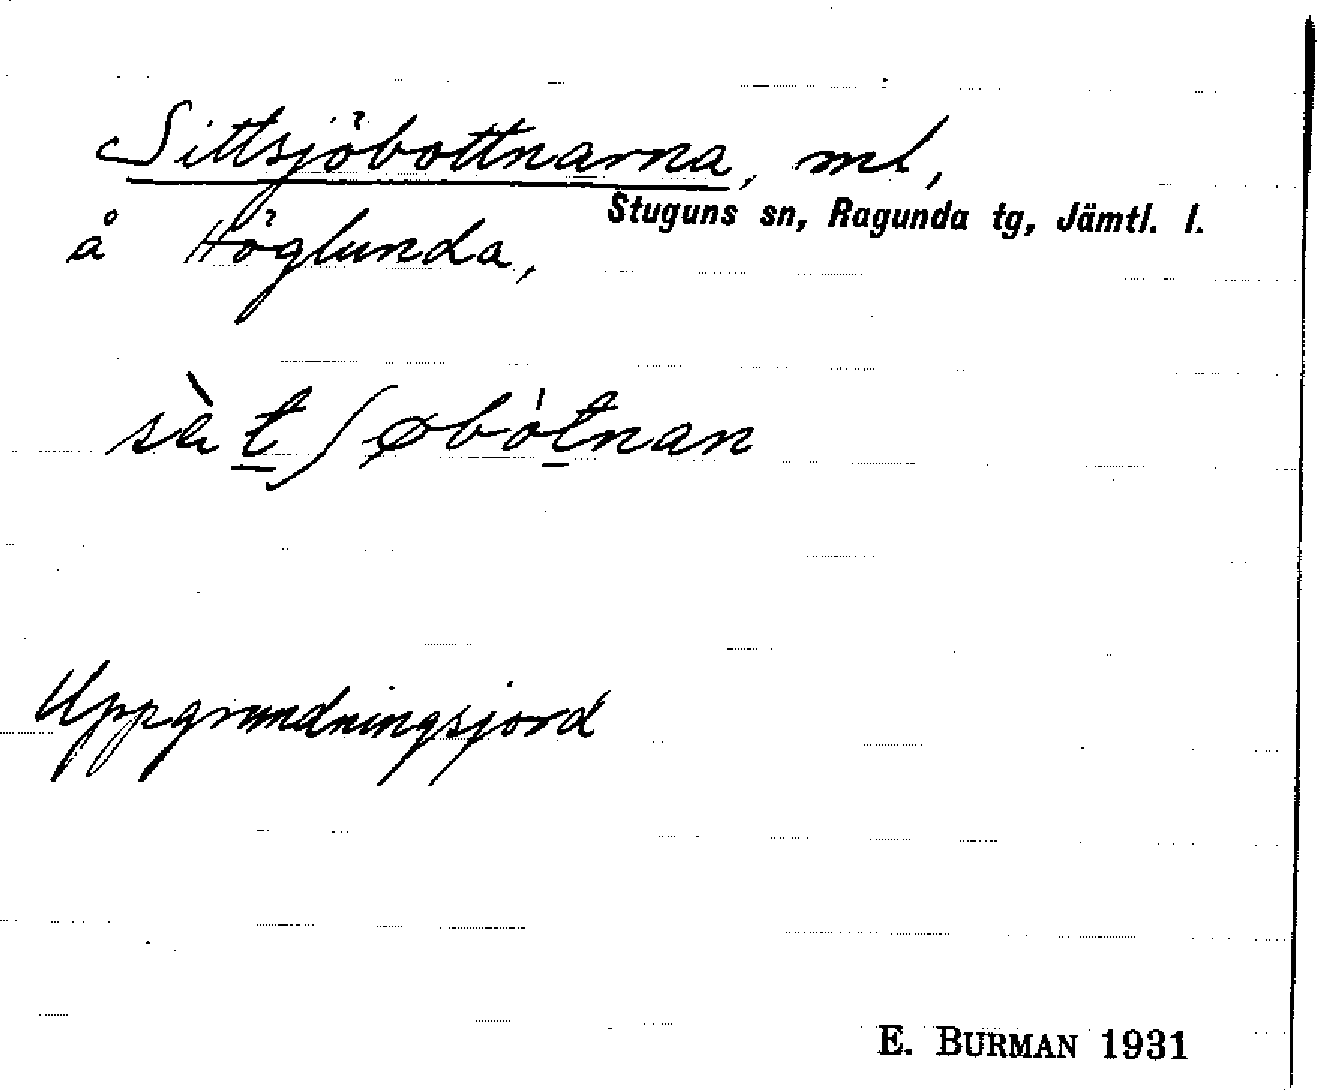 Sittsjöbottnarna, ml,
Stuguns sn, Ragunda tg, Jämtl. l.
å Höglunda,
sàt̲ʃøbòt̲nan
Uppgrundningsjord
E. BURMAN 1931